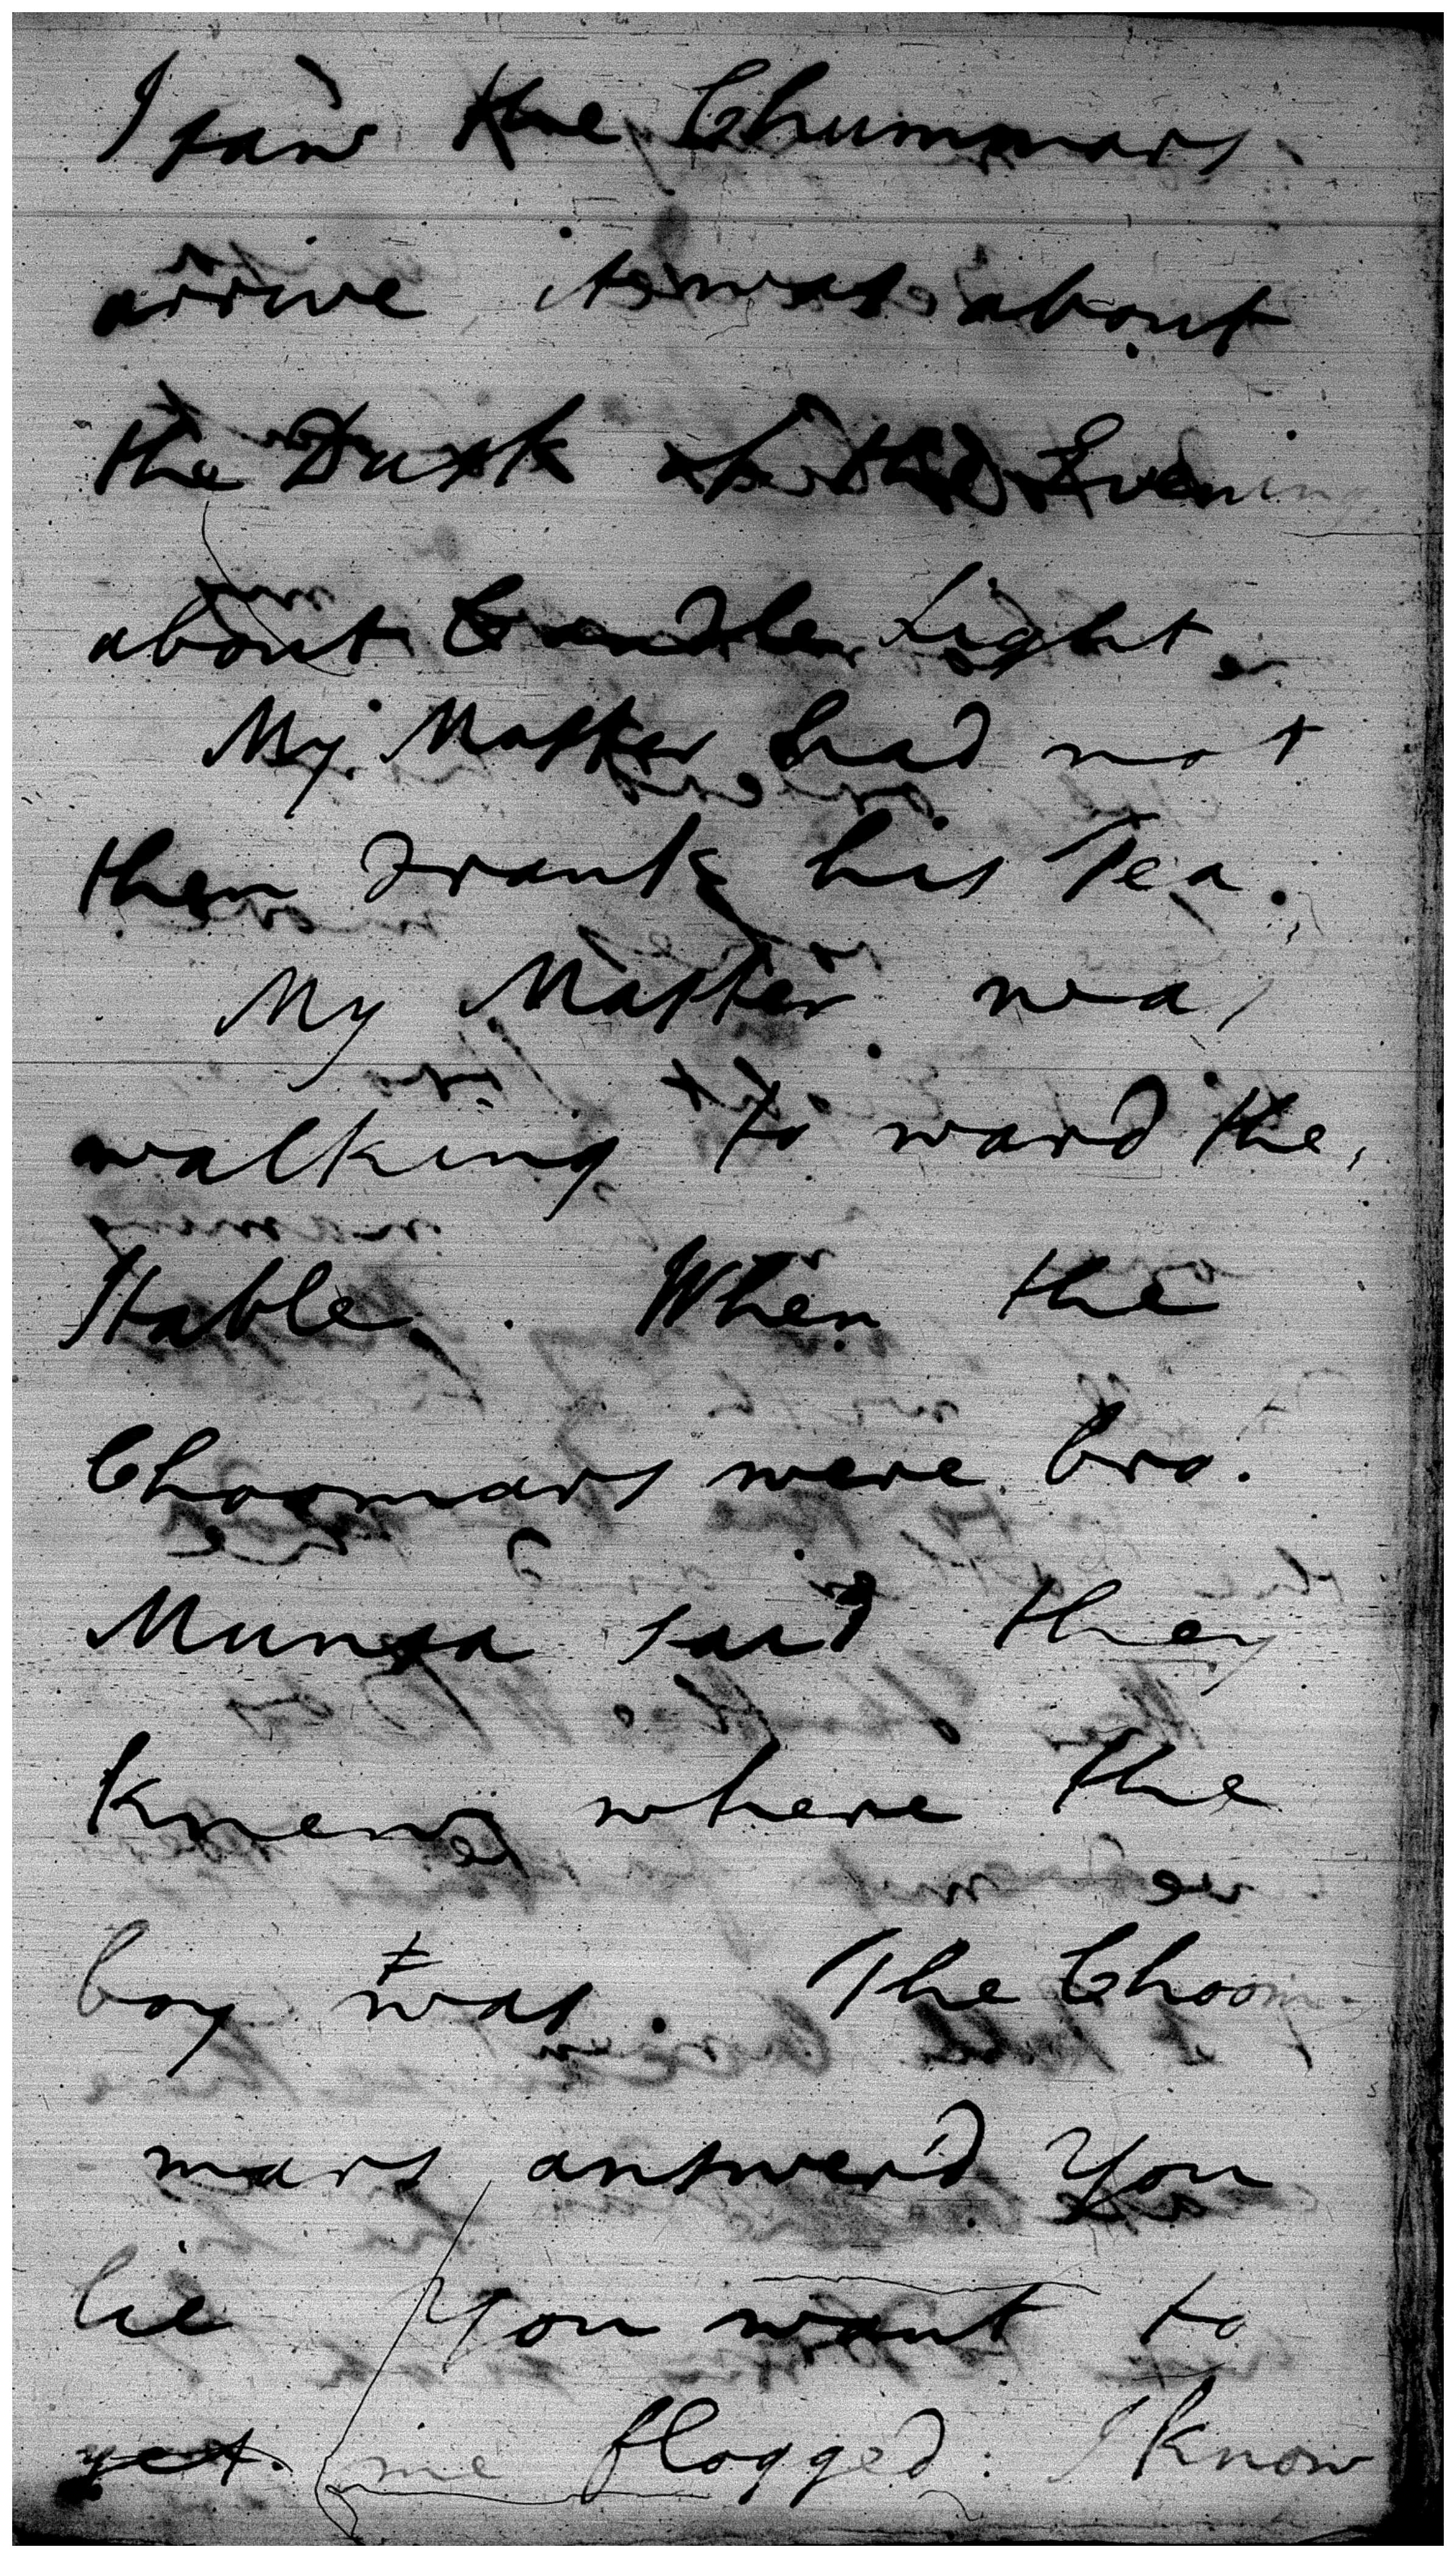 I saw the Chummars
arrive it was about
the Dusk of the Evening
about Candle Light
My Master had not
then Drank his Tea.
My Master was
walking to ward the
Stable. When the
Choomars were bro.
Munsa said they
knew where the
boy was. The Choom
mars answer'd You
lie You want to
get me flogged: I know